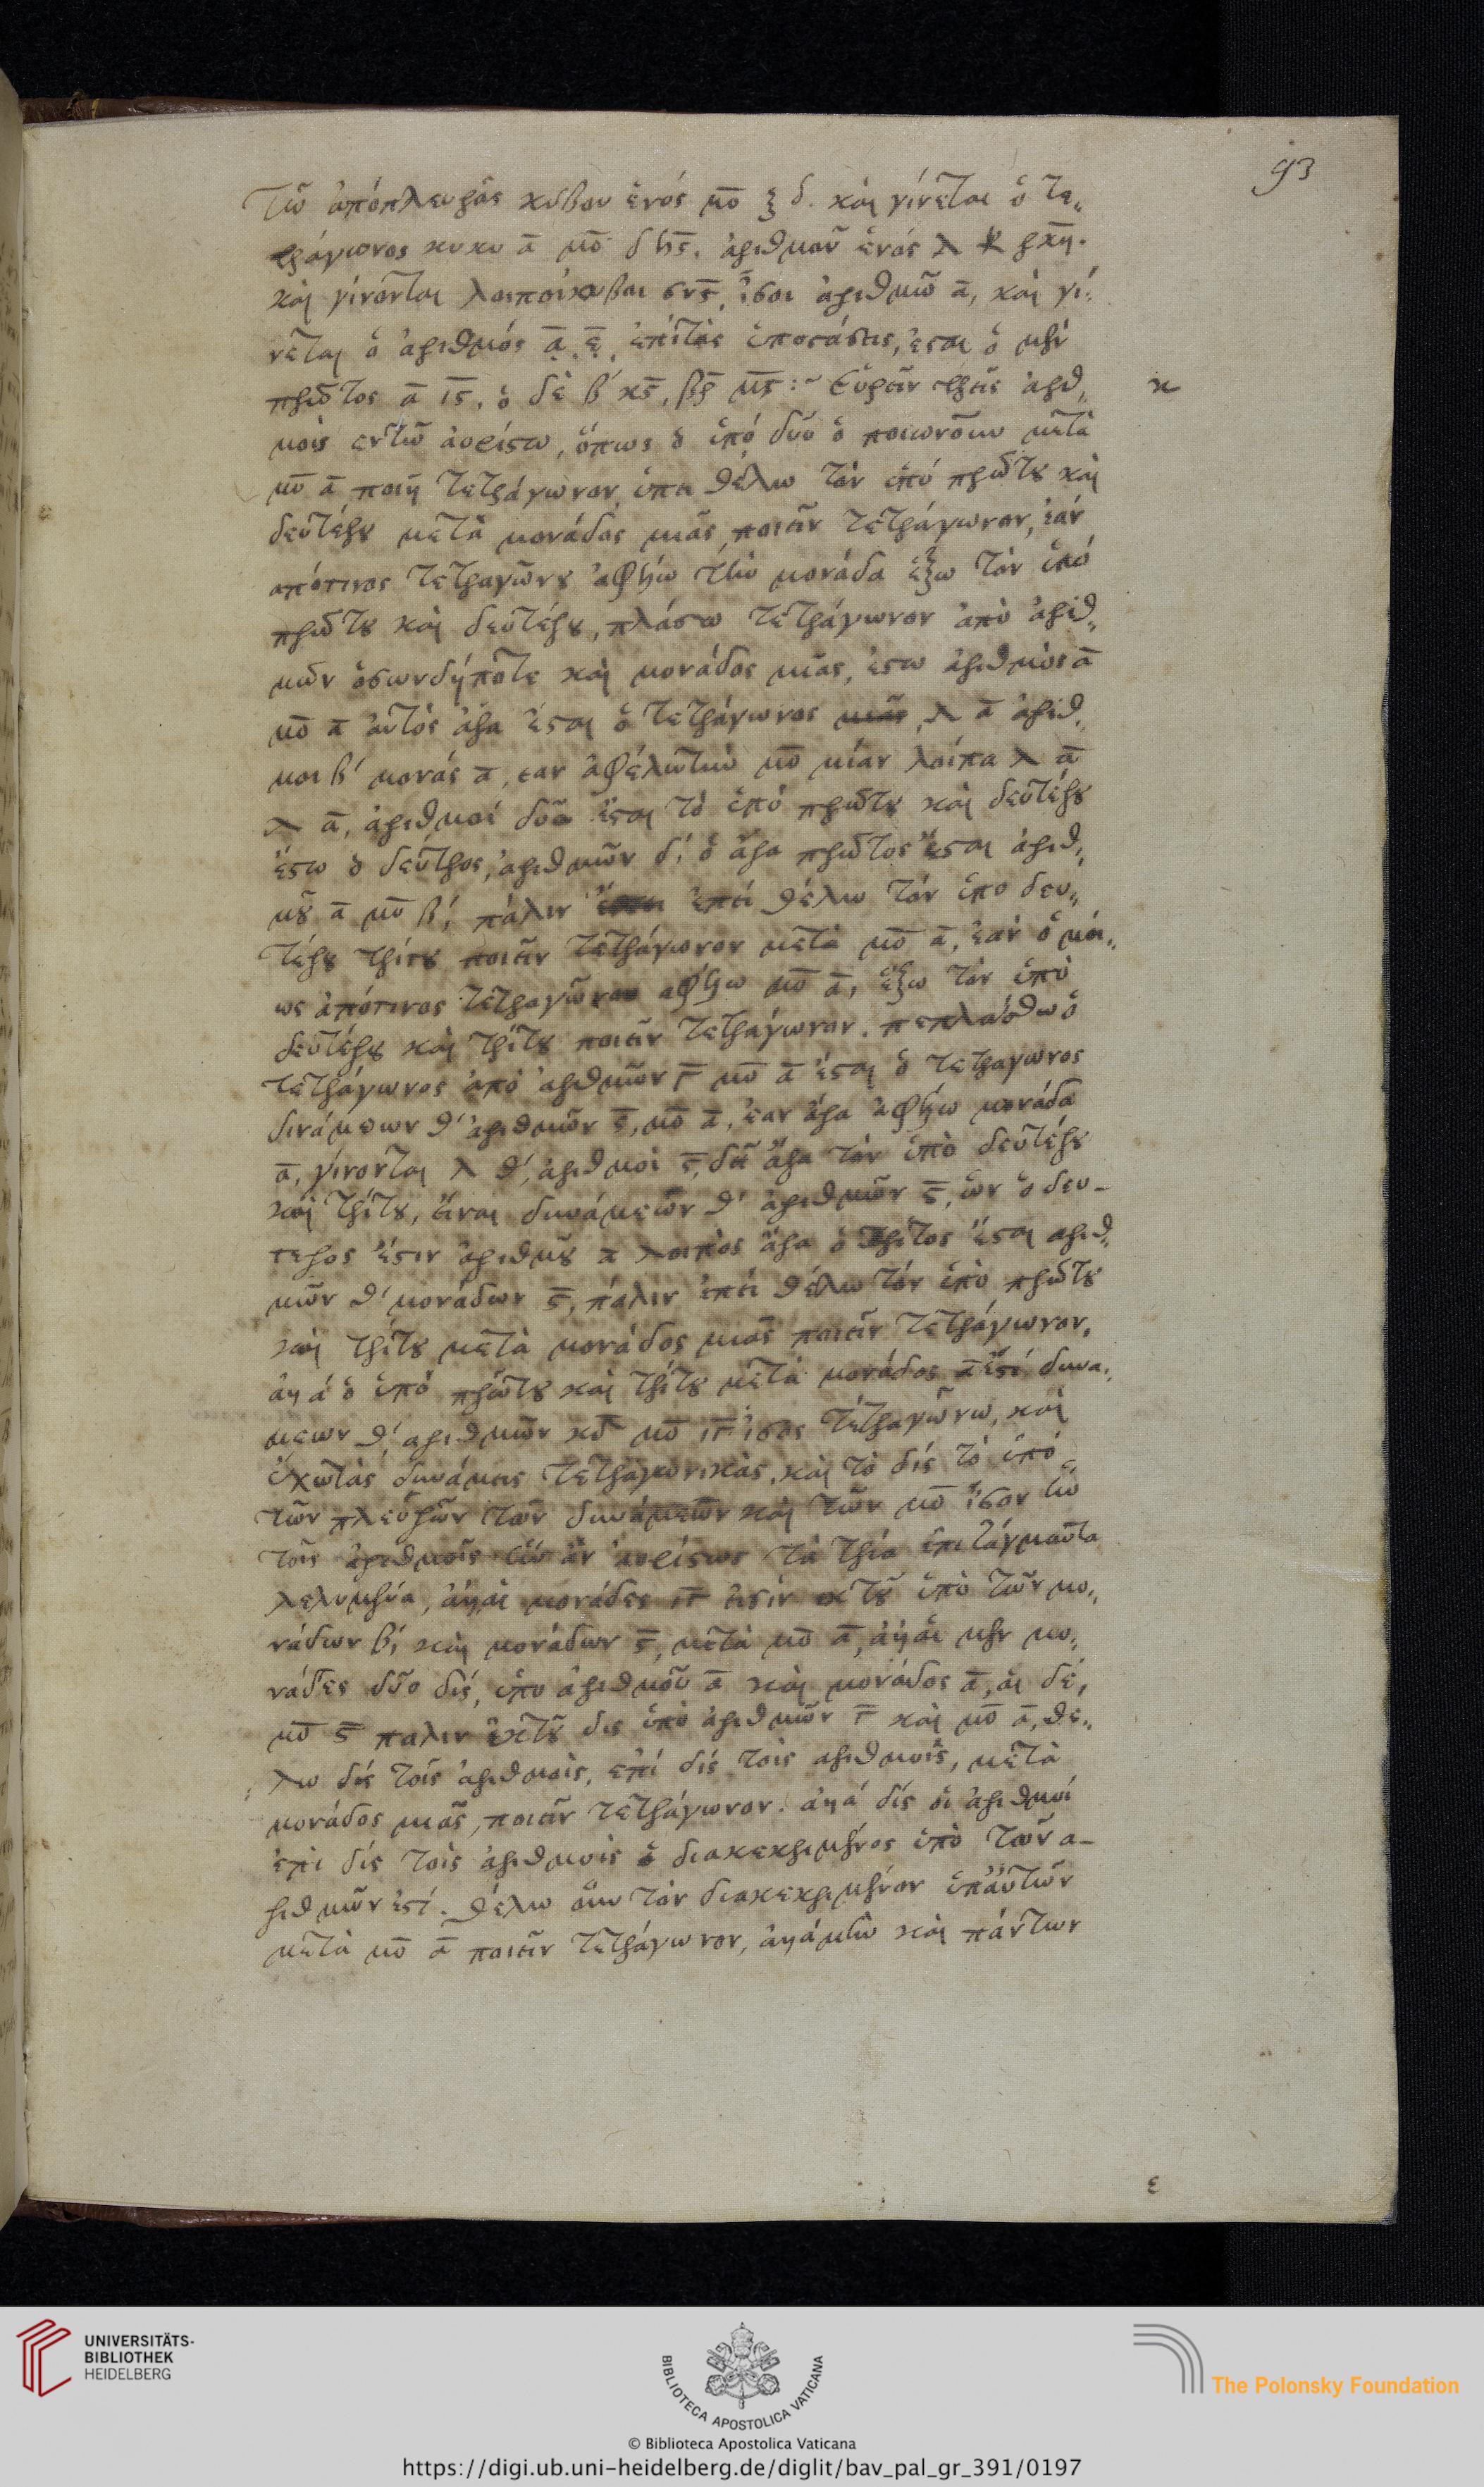 93
τῶ ἀπὸ πλευρᾶς κύβου ἑνός μο ξδ. καὶ γίνεται ὁ τε„
τράγωνος κυκυ α μο δ ϟϛ. ἀριθμοῦ ἑνός λ ρκη.
καὶ γίνονται λοιποί κυβοι σνϛ, ἴσοι ἀριθμῶ α, καὶ γί„
νεται ὁ ἀριθμός α. ε. ἐπὶ τὰς ὑποστάσεις, ἔσται ὁ μὲν
πρῶτος α ιϛ. ὁ δὲ β κϛ. βρ μϛ :~ Εὑρεῖν τρεῖς ἀριθ„
κ
μοὶς εν τῶ ἀορίστω, ὅπως ὁ ὑπό δύο ὁ ποιωνοῦν μετὰ
μο α ποιῆ τετράγωνον, ὑπει θέλω τὸν ὑπό πρώτου καὶ
δευτέρου μετὰ μονάδος μιᾶς, ποιεῖν τετράγωνον, ἐάν
ἀπότινος τετραγώνου ἀφέλω τὴν μονάδα ἕξω τὸν ὑπό
πρώτου καὶ δευτέρου, πλάσσω τετράγωνον ἀπὸ ἀριθ„
μῶν ὁσωνδήποτε καὶ μονάδος μιᾶς, ἔστω ἀριθμὸς α
μο α αὐτὸς ἄρα ἔσται ὁ τετράγωνος λ α ἀριθ„
μοι β μονάς α, εαν ἀφέλω τὴν μο μίαν λοίπα λ α
λ α, ἀριθμοί δύο ἔσται τὸ ὑπό πρώτου καὶ δευτέρου
ἔστω ὁ δεύτρος, ἀριθμῶν δ, ὁ ἄρα πρῶτος ἔσται ἀριθ„
μοῦ α μο β, πάλιν ἐπεί θέλω τὸν ὑπο δευ„
τέρου τρίτου ποιεῖν τετράγωνον μετὰ μο α, ἐάν ὁ μοι„
ως ἀπότινος τετραγώνου αφέλω μο α, ἕξω τὸν ὑπὸ
δευτέρου καὶ τρίτου ποιεῖν τετράγωνον. πεπλάσθω ὁ
τετράγωνος ἀπὸ ἀριθμῶν γ μο α ἔσται ὁ τετραγωνος
δινάμεων θ ἀριθμῶν ϛ, μο α, ἐαν ἄρα ἀφέλω μονάδα
α, γίνονται λ θ, ἀριθμοὶ ϛ, δεῖ ἄρα τὸν ὑπὸ δευτέρου
καὶ τρίτου, εἶναι δυνάμεων θ ἀριθμῶν ϛ, ὧν ὁ δευ-
τερος ἔστιν ἀριθμοῦ α λοιπὸς ἄρα ὁ τρίτος ἔσται αριθ„
μῶν θ μονάδων ϛ, πάλιν ἐπεί θέλω τὸν ὑπὸ πρώτου
καὶ τρίτου μετὰ μονάδος μιᾶς ποιεῖν τετράγωνον,
ἀλλά ὁ ὑπὸ πρώτου καὶ τρίτου μετὰ μονάδος α ἐστί δυνα„
μεων θ, αριθμῶν κδ μο ιγ ἴσος τετραγώνω, καὶ
ἔχω τὰς δυνάμεις τετραγωνικὰς, καὶ τὸ δίς τὸ ὑπό
τῶν πλευρῶν τῶν δυνάμεων καὶ τῶν μο ἴσον ἦν
τοῖς ἀριθμοῖς ἀορίστως τὰ τρία ἐπιτάγματα
λελυμένα, ἀλλ' αἱ μονάδες ιγ εἰσίν ἐκ τοῦ ὑπὸ τῶν μο„
νάδων β, καὶ μονάδων ϛ, μετὰ μο α, ἀλλ' αἱ μὲν μο„
νάδες δύο δίς, ὑπο ἀριθμοῦ α καὶ μονάδος α, αἱ δέ,
μο ϛ παλιν ἐκ τοῦ δις ὑπὸ ἀριθμῶν γ καὶ μο α, θε„
λω δίς τοῖς ἀριθμοὶς, επί δίς τοὶς αριθμοίς, μετὰ
μονάδος μιᾶς, ποιεῖν τετράγωνον. ἀλλά δίς οἱ ἀριθμοί
ἐπὶ δίς τοὶς ἀριθμοὶς ὁ διακεκριμένος ὑπὸ τῶν α-
ριθμῶν ἐστί. θέλω οὖν τὸν διακεκριμένον ὑπ' αὐτῶν
μετὰ μο α ποιεῖν τετράγωνον, ἀλλά μὴν καὶ πάντων
ε
UNIVERSITÄTS-
BIBLIOTHEK
HEIDELBERG
BIBLIOTECA APOSTOLICA VATICANA
The Polonsky Foundation
© Biblioteca Apostolica Vaticana
https://digi.ub.uni-heidelberg.de/diglit/bav_pal_gr_391/0197